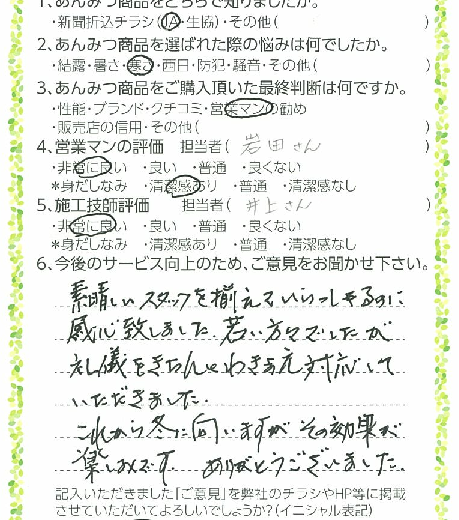 1、あんみつ商品をどちらで知りましたか。
・新聞折込チラシ(JA・生協)・その他(
2、あんみつ商品を選ばれた際の悩みは何でしたか。
・結露・暑さ・寒さ・西日・防犯・騒音・その他( )
3、あんみつ商品をご購入頂いた最終判断は何ですか。
・性能・ブランド・クチコミ・営業マンの勧め
・販売店の信用・その他( )
4、営業マンの評価 担当者( 岩田さん )
・非常に良い ・良い ・普通 ・良くない
*身だしなみ ・清潔感あり ・普通 ・清潔感なし
5、施工技師評価 担当者( 井上さん )
・非常に良い ・良い ・普通 ・良くない
*身だしなみ ・清潔感あり ・普通 ・清潔感なし
6、今後のサービス向上のため、ご意見をお聞かせ下さい。
素晴しいスタッフを揃えていらっしゃるのに
感心致しました。若い方々でしたが
礼儀をきちんとわきまえ対応して
いただきました。
これから冬に向いますがその効果が
楽しみです。ありがとうございました。
記入いただきました「ご意見」を弊社のチラシやHP等に掲載
させていただいてよろしいでしょうか?(イニシャル表記)